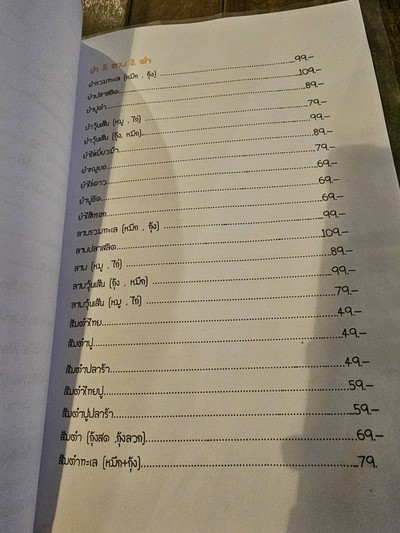 ยำ & ลาบ & ตำ
ยำรวมทะเล (หมึก , กุ้ง) ........ 99.-
ยำปลาสลิด........ 109.-
ยำปูดำ........ 89.-
ยำวุ้นเส้น (หมู , ไก่) ........ 79.-
ยำวุ้นเส้น (กุ้ง, หมึก)........ 99.-
ยำไข่เยี่ยวม้า........ 89.-
ยำหมูยอ........ 79.-
ยำไข่ดาว........ 69.-
ยำปูอัด........ 69.-
ยำไส้กรอก........ 69.-
ลาบรวมทะเล (หมึก , กุ้ง) ........ 99.-
ลาบปลาสลิด........ 109.-
ลาบ (หมู , ไก่) ........ 89.-
ลาบวุ้นเส้น (กุ้ง , หมึก) ........ 99.-
ลาบวุ้นเส้น (หมู , ไก่) ........ 79.-
ส้มตำไทย........ 49.-
ส้มตำปู........ 49.-
ส้มตำปลาร้า........ 49.-
ส้มตำไทยปู........ 59.-
ส้มตำปูปลาร้า........ 59.-
ส้มตำ (กุ้งสด ,กุ้งลวก)........ 69.-
ส้มตำทะเล (หมึก+กุ้ง)........ 79.